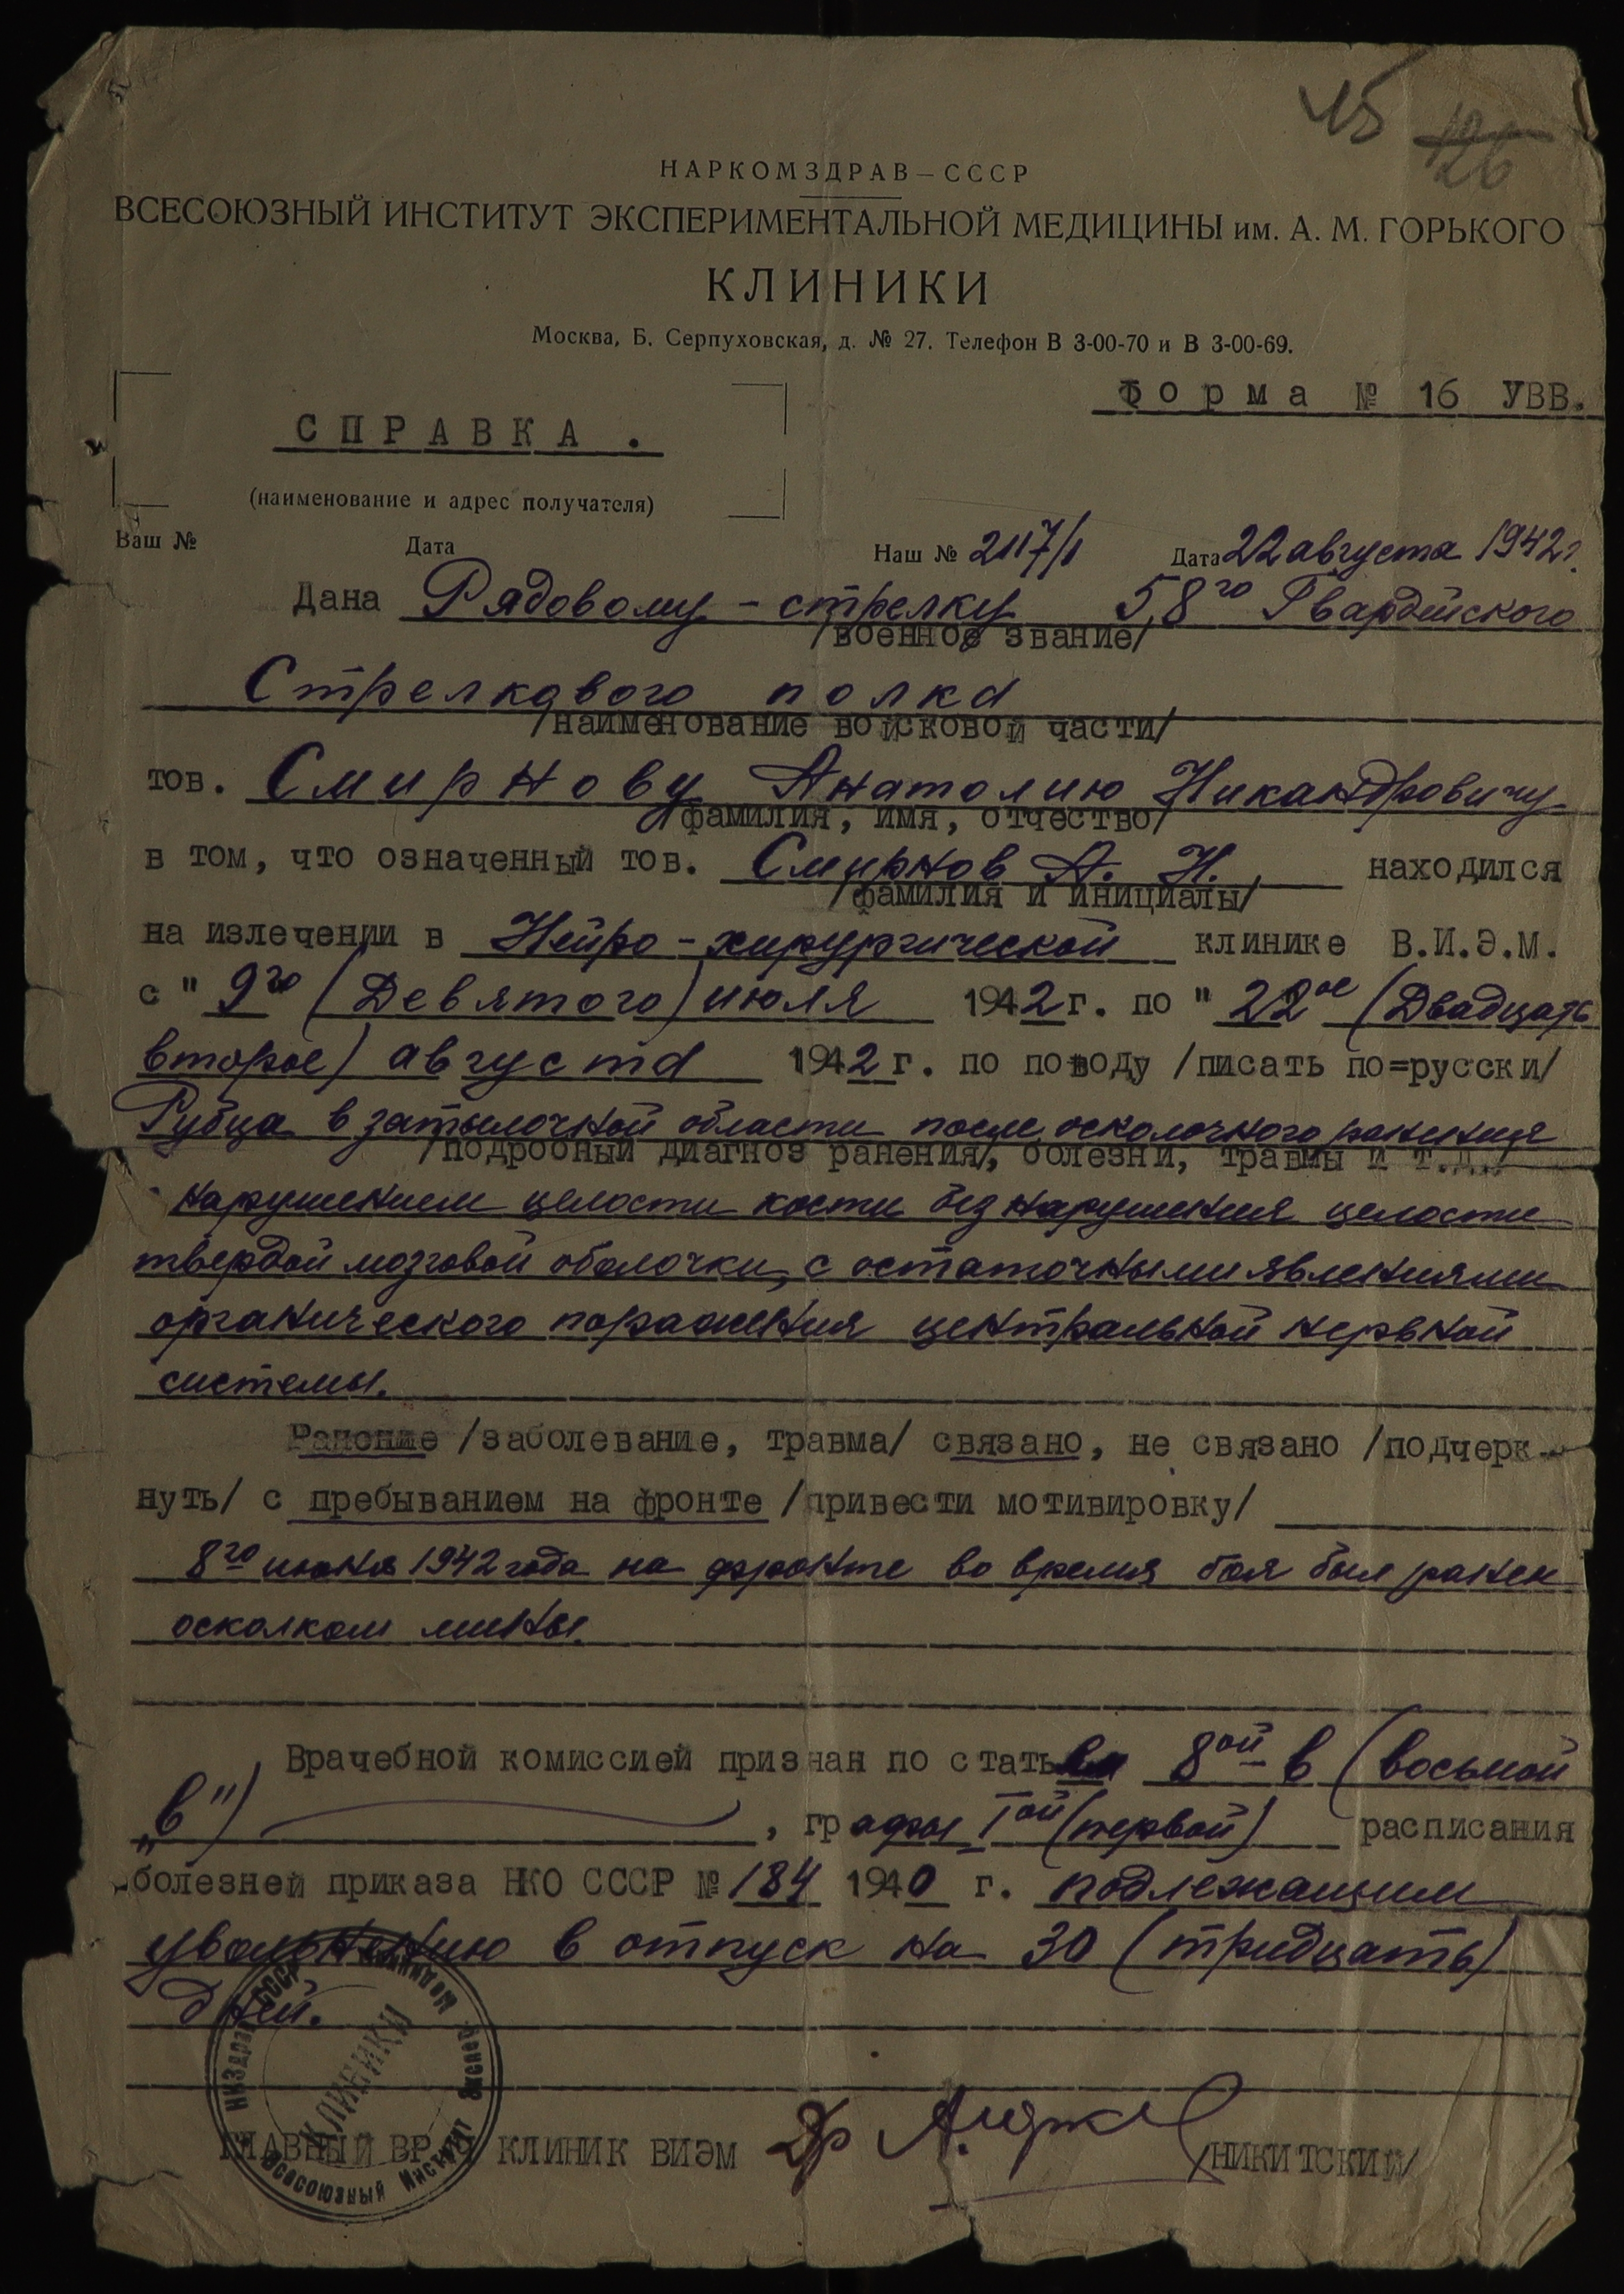 15
126
НАРКОМЗДРАВ — СССР
ВСЕСОЮЗНЫЙ ИНСТИТУТ ЭКСПЕРИМЕНТАЛЬНОЙ МЕДИЦИНЫ им. А. М. ГОРЬКОГО
КЛИНИКИ
Москва, Б. Серпуховская, д. № 27. Телефон В 3-00-70 и В 3-00-69.
Форма № 16 УВВ.
СПРАВКА.
(наименование и адрес получателя)
Ваш № Дата Наш № 2117/1 Дата 22 августа 1942г.
Дана Рядовому - стрелку 58го Гвардейского
/военное звание/
Стрелкового полка
/наименование войсковой части/
тов. Смирнову Анатолию Никандровичу
/фамилия, имя, отчество/
в том, что означенный тов. Смирнов А. Н. находился
/фамилия и инициалы/
на излечении в Нейро-хирургической клинике В.И.Э.М.
с " 9го (Девятого) июля 1942г. по " 22ое (Двадцать
второе) августа 1942г. по поводу /писать по=русски/
Рубца в затылочной области после осколочного ранения
/подробный диагноз ранения/, болезни, травмы и т.д../
нарушением целости кости без нарушения целости
твердой мозговой оболочки, с остаточными явлениями
органического поражения центральной нервной
системы.
Ранение /заболевание, травма/ связано, не связано /подчерк-
нуть/ с пребыванием на фронте /привести мотивировку/
8го июня 1942 года на фронте во время боя был ранен
осколком мины.
Врачебной комиссией признан по статье 8ой-в (восьмой
„в") , графы Iой (первой) расписания
болезней приказа НКО СССР № 184 1940 г. подлежащим
увольнению в отпуск на 30 (тридцать)
дней.
КЛИНИКИ
Всесоюзный Институт Экспер. Медицины
ГЛАВНЫЙ ВРАЧ КЛИНИК ВИЭМ Др /НИКИТСКИЙ/